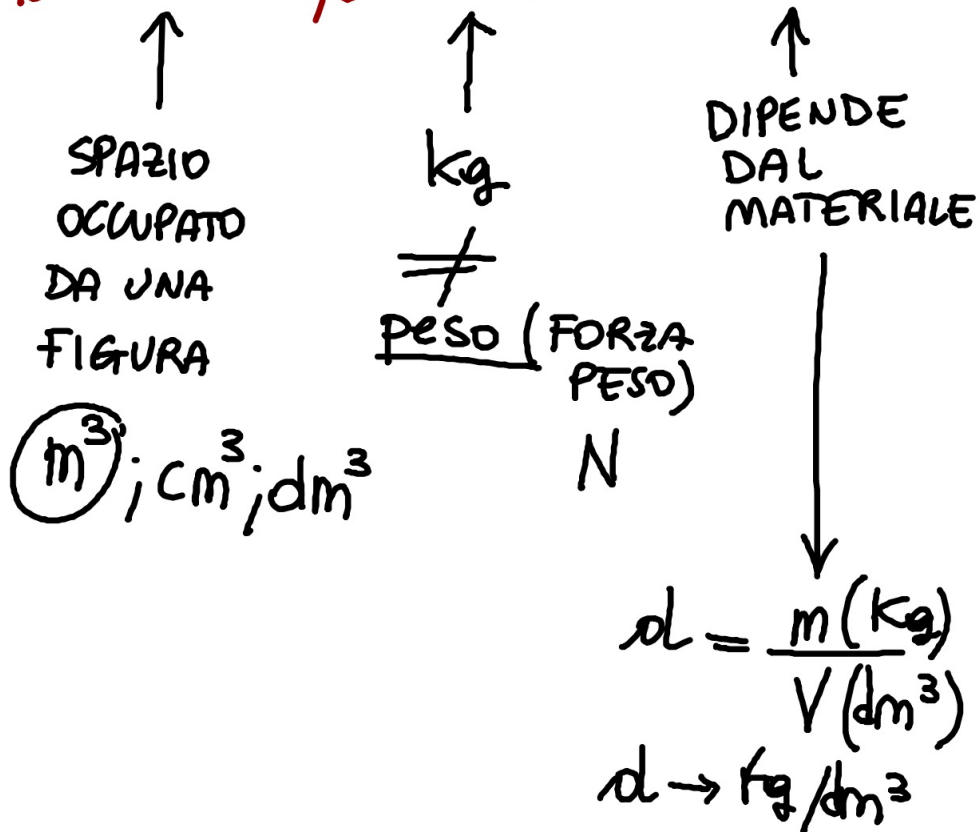 SPAZIO
OCCUPATO
DA UNA
FIGURA
m³; cm³; dm³
kg
≠
peso (FORZA
PESO)
N
DIPENDE
DAL
MATERIALE
d = m (Kg)
V (dm³)
d → kg/dm³